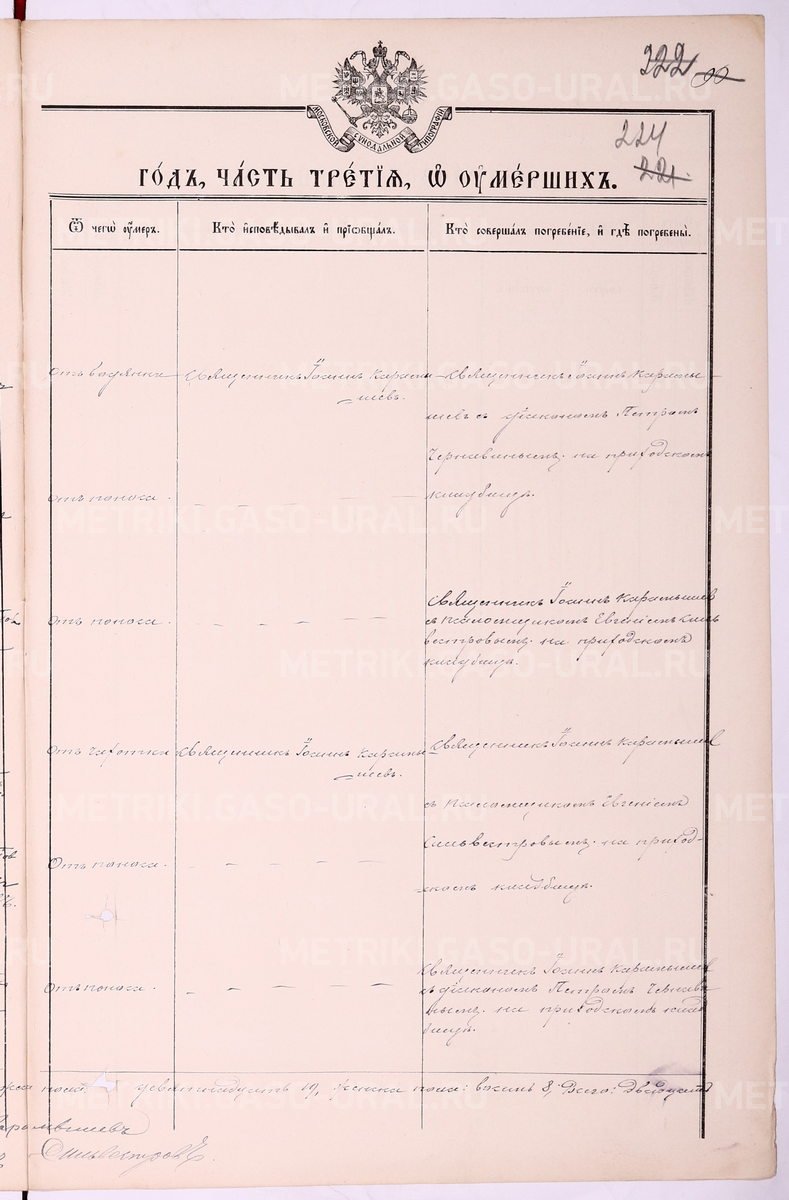 322
224
221.
МОСКОВСКОЙ СѴНОДАЛЬНОЙ ТИПОГРАФІИ
ГО́ДЪ, ЧА́СТЬ ТРЕ́ТІѦ, Ѽ ОУМЕ́РШИХЪ.
Ѿ чегѡ̀ оу́меръ.
Кто̀ и҆сповѣ́дывалъ и҆ прїѡбща́лъ.
Кто̀ соверша́лъ погребе́нїе, и҆ гдѣ̀ погребе́ны.
Отъ водянки
Священникъ Іоаннъ Карамы
шевъ.
Священникъ Іоаннъ Карамы-
шевъ съ діакономъ Петромъ
Чернавинымъ. на приходскомъ
кладбищѣ.
Отъ поноса.
Отъ поноса.
Священникъ Іоаннъ Карамышев
съ псаломщикомъ Евгеніемъ Силь
вестровымъ. на приходскомъ
кладбищѣ.
Отъ чахотки
Священникъ Іоаннъ Карамы
шевъ.
Священникъ Іоаннъ Карамышев
съ псаломщикомъ Евгеніемъ
Сильвестровымъ. на приход-
скомъ кладбищѣ.
Отъ поноса.
Отъ поноса.
Священникъ Іоаннъ Карамышев
съ діакономъ Петромъ Чернави
нымъ. на приходскомъ клад
бищѣ.
пола: девятнадцать 19, женска пола: восемь 8, Всего: Двадцать
Карамышевъ
Сильвестровъ.
METRIKI.GASO-URAL.RU